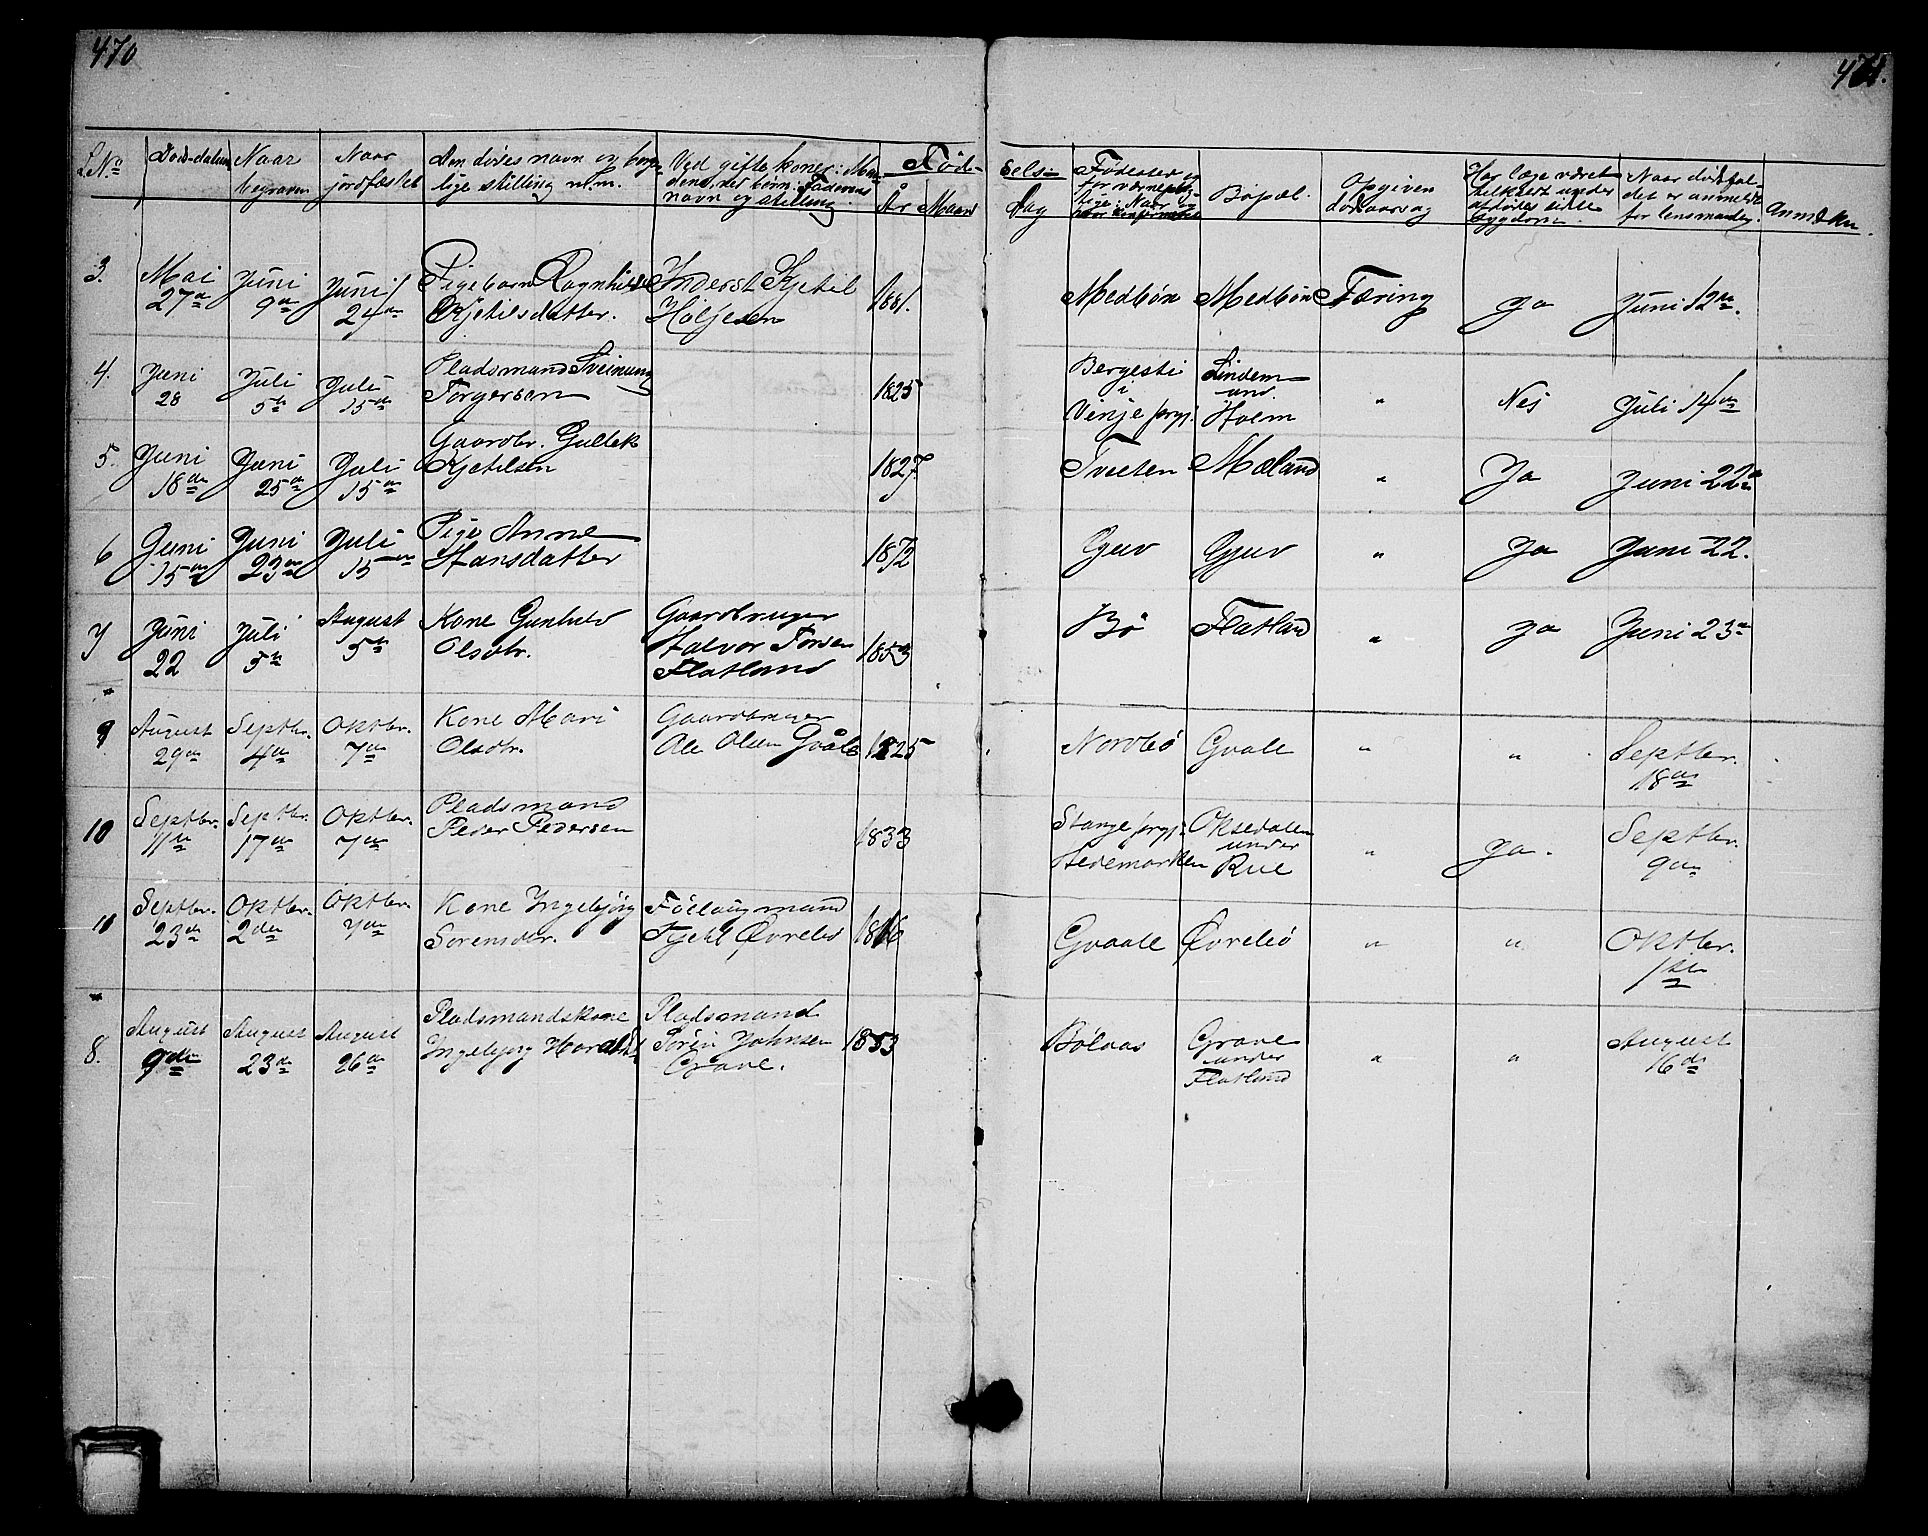 470
471.
L.No Døds-datum Naar begraven Naar jordfæstet Den dødes navn og borgerlige stilling m.m. Ved gifte koner: Mandens, ved børn: Faderens navn og stilling. Fødselsår Maaned Dag Fødested og for værnepligtige: Naar og hvor konfirmeret Bopæl. Opgiven dødsaarsag Har læge været tilkaldt under afdødes sidste sygdom. Naar dødsfaldet er anmeldt for lensmanden. Anmærkn.
3. Mai 27de Juni 9de Juni 24de Pigebarn Ragnhild Kjetilsdatter. Inderst Kjetil Høljesen 1881. Medbøn Medbøn Tæring Ja Juni 12te.
4. Juni 28 Juli 5te Juli 15de Pladsmand Sveinung Torgersen 1825 Bergesti i Vinje prgj. Lindem und. Holm " Nej Juli 14de
5. Juni 18de Juni 25de Juli 15de Gaardbr. Gullek Kjetilsen 1827 Tveten Mæland " Ja Juni 22de
6 Juni 15de Juni 23de Juli 15de Pige Anne Hansdatter 1872 Gjuv Gjuv " Ja Juni 22.
7 Juni 22 Juli 5te August 5te Kone Gunhild Olsdtr. Gaardbruger Halvor Torsen Flatland 1853 Bø Flatland " Ja Juni 23de
9 August 29de Septbr. 4de Oktbr. 7de Kone Mari Olsdtr. Gaardbruger Ole Olsen Gvåle 1825 Nordbø Gvale " " Septbr. 18de
10 Septbr. 11te Septbr. 17de Oktbr. 7de Pladsmand Peder Pedersen 1833 Stange prgj. Hedemarken Oksedalen under Rue " Ja. Septbr. 9de
11 Septbr. 23de Oktbr. 2den Oktbr. 7de Kone Ingebjørg Sørensdtr. Føllaugsmand Kjetil Øvrebø 1816 Gvaale Øvrebø " " Oktbr. 1ste
8. August 9de August 23de August 26de Pladsmandskone Ingebjorg Pladsmand Søren Johnsen Grave. 1853 Bølaas Grave under Flatland " " August 16de